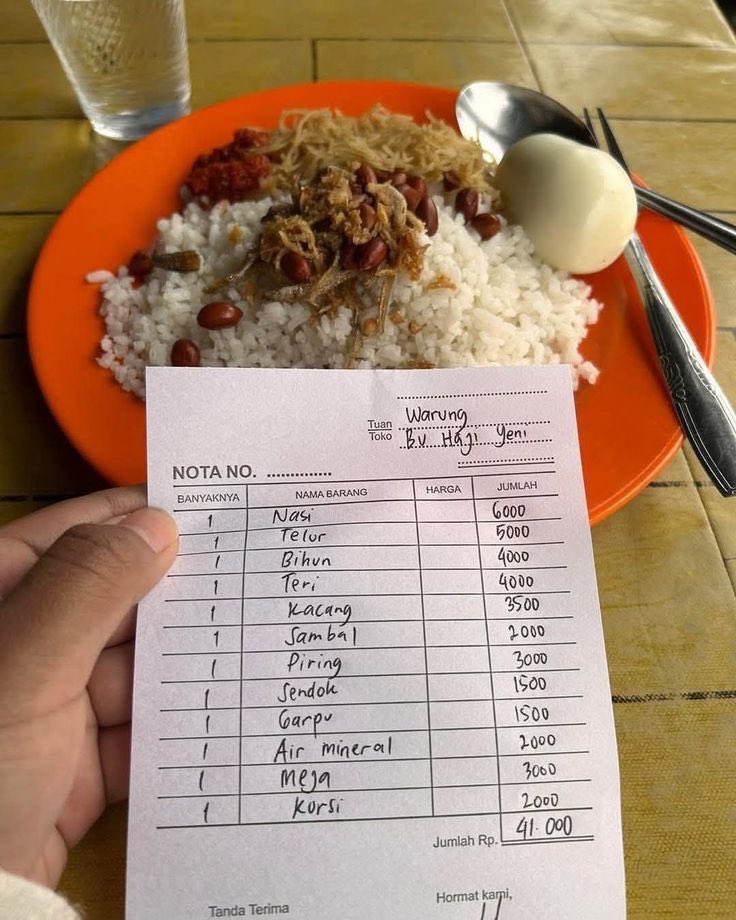 Tuan
Toko
Warung
Bu Haji Yeni
NOTA NO. ..............
BANYAKNYA NAMA BARANG HARGA JUMLAH
1 Nasi 6000
1 Telur 5000
1 Bihun 4000
1 Teri 4000
1 Kacang 3500
1 Sambal 2000
1 Piring 3000
1 Sendok 1500
1 Garpu 1500
1 Air mineral 2000
1 Meja 3000
1 Kursi 2000
Jumlah Rp. 41.000
Tanda Terima Hormat kami,